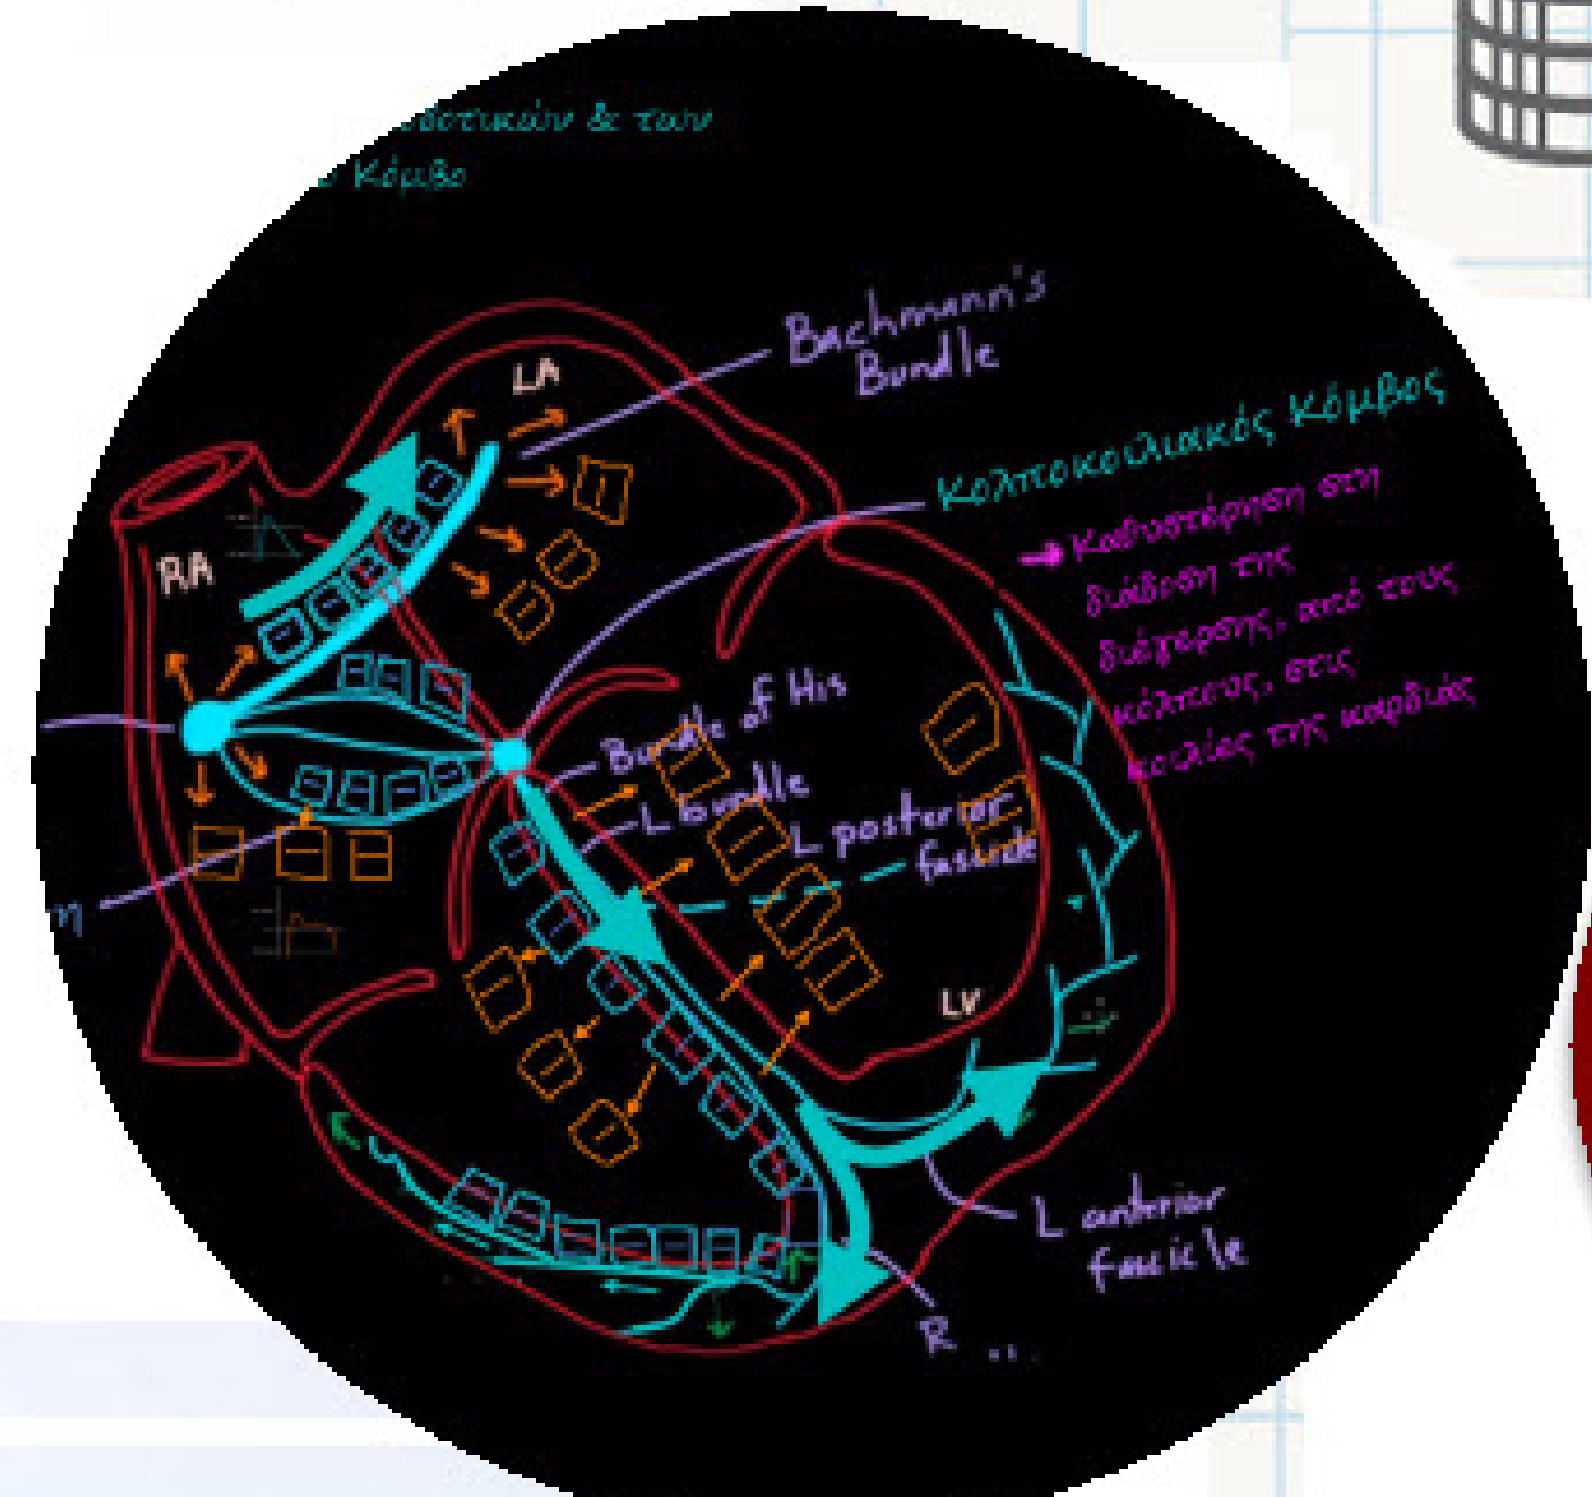 & των
Κόμβο
Bachmann's
Bundle
LA
Κολποκοιλιακός Κόμβος
→ Καθυστέρηση στη
διάδοση της
διέγερσης, από τους
κόλπους, στις
κοιλίες της καρδιάς
RA
Bundle of His
L bundle
L posterior
fascicle
η
LV
L anterior
fascicle
R